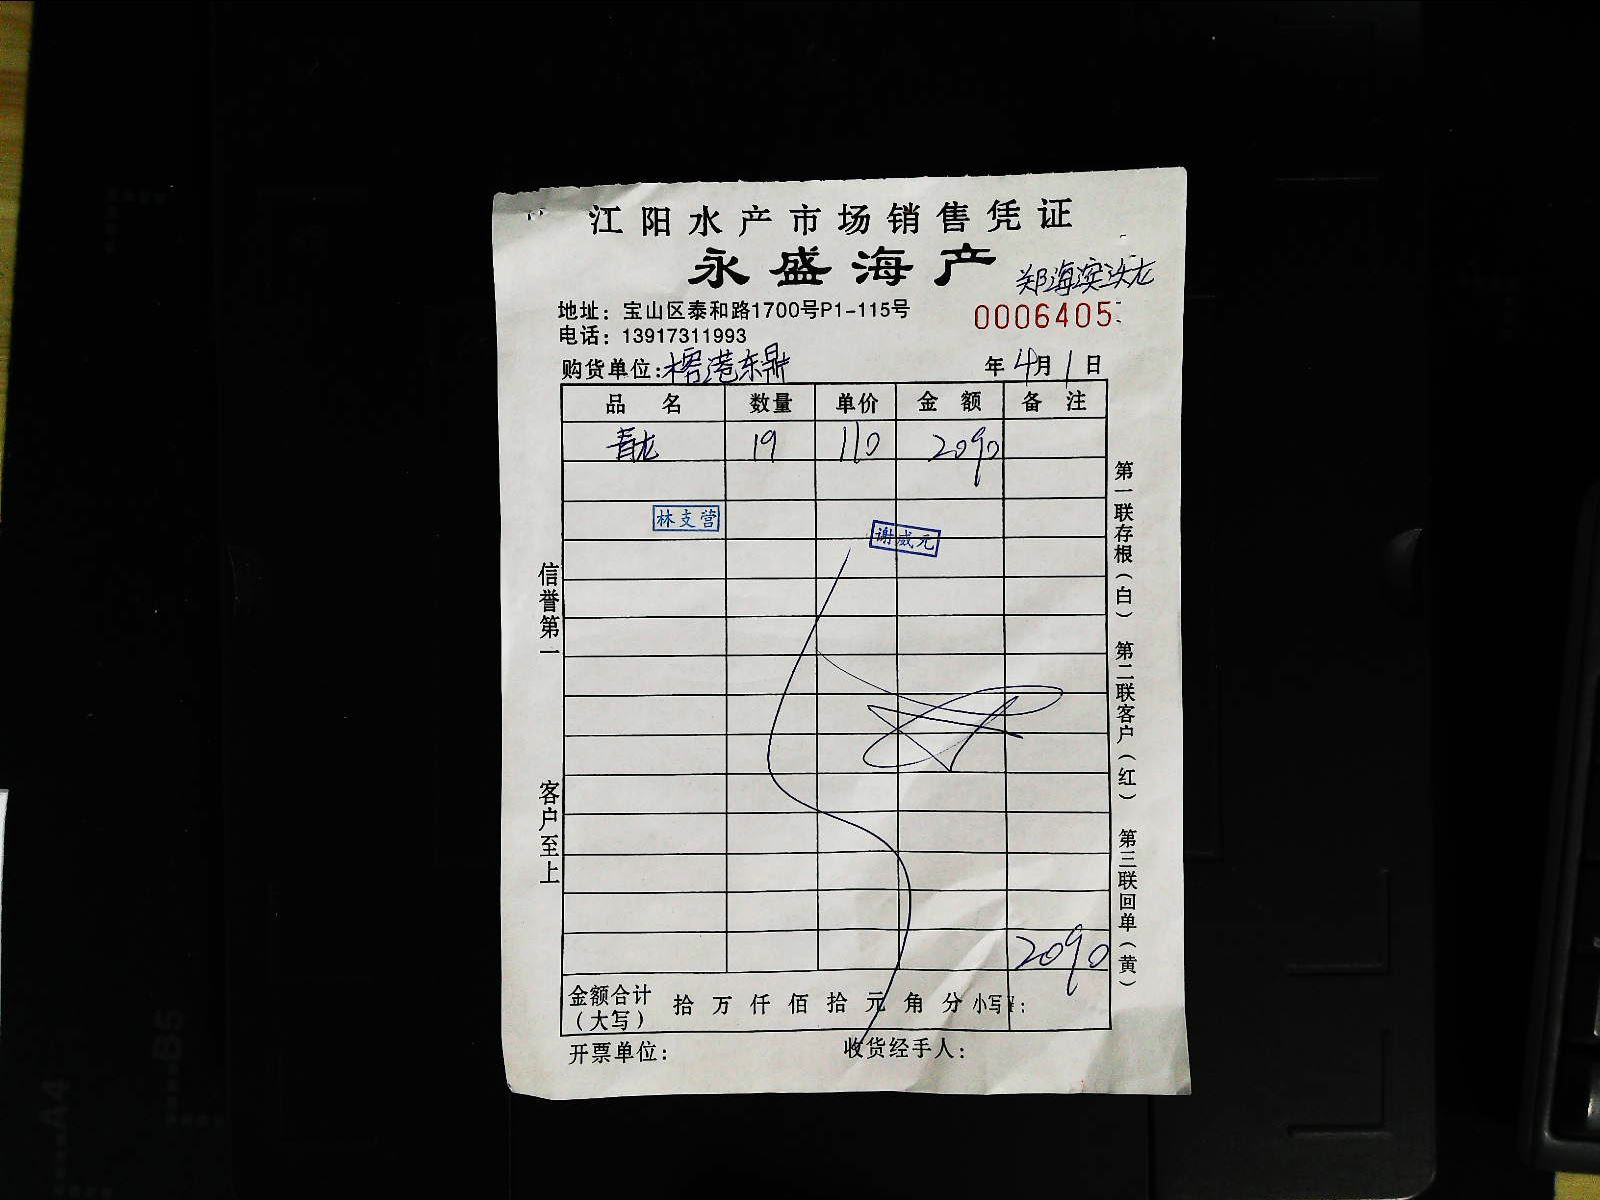 江阳水产市场销售凭证
永盛海产
郑海滨
地址：宝山区泰和路1700号P1-115号
0006405
电话：13917311993
购货单位：榕港东鼎 年4月1日
品名 数量 单价 金额 备注
青龙 19 110 2090
林支营
谢威元
信誉第一
客户至上
第一联存根（白） 第二联客户（红） 第三联回单（黄）
2090
金额合计（大写） 拾万仟佰拾元角分 小写¥：
开票单位： 收货经手人：
A4
B5